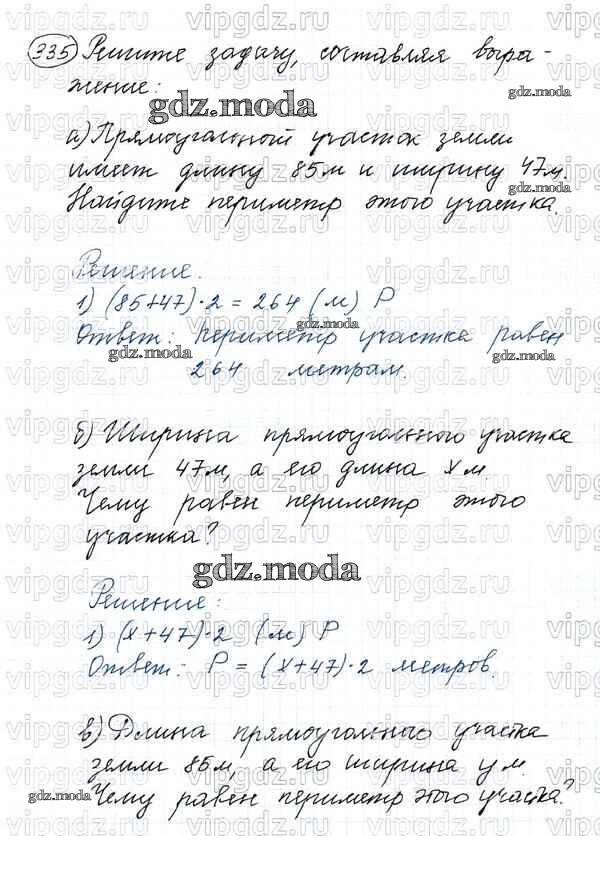 335 Решите задачу, составляя выра-
жение:
gdz.moda
а) Прямоугольный участок земли
имеет длину 85 м и ширину 47 м.
Найдите периметр этого участка.
Решение.
1) (85+47)·2 = 264 (м) P
Ответ: периметр участка равен
264 метрам.
gdz.moda
б) Ширина прямоугольного участка
земли 47 м, а его длина x м.
Чему равен периметр этого
участка?
gdz.moda
Решение:
1) (x+47)·2 (м) P
Ответ: P = (x+47)·2 метров.
в) Длина прямоугольного участка
земли 85 м, а его ширина y м.
gdz.moda
Чему равен периметр этого участка?
vipgdz.ru